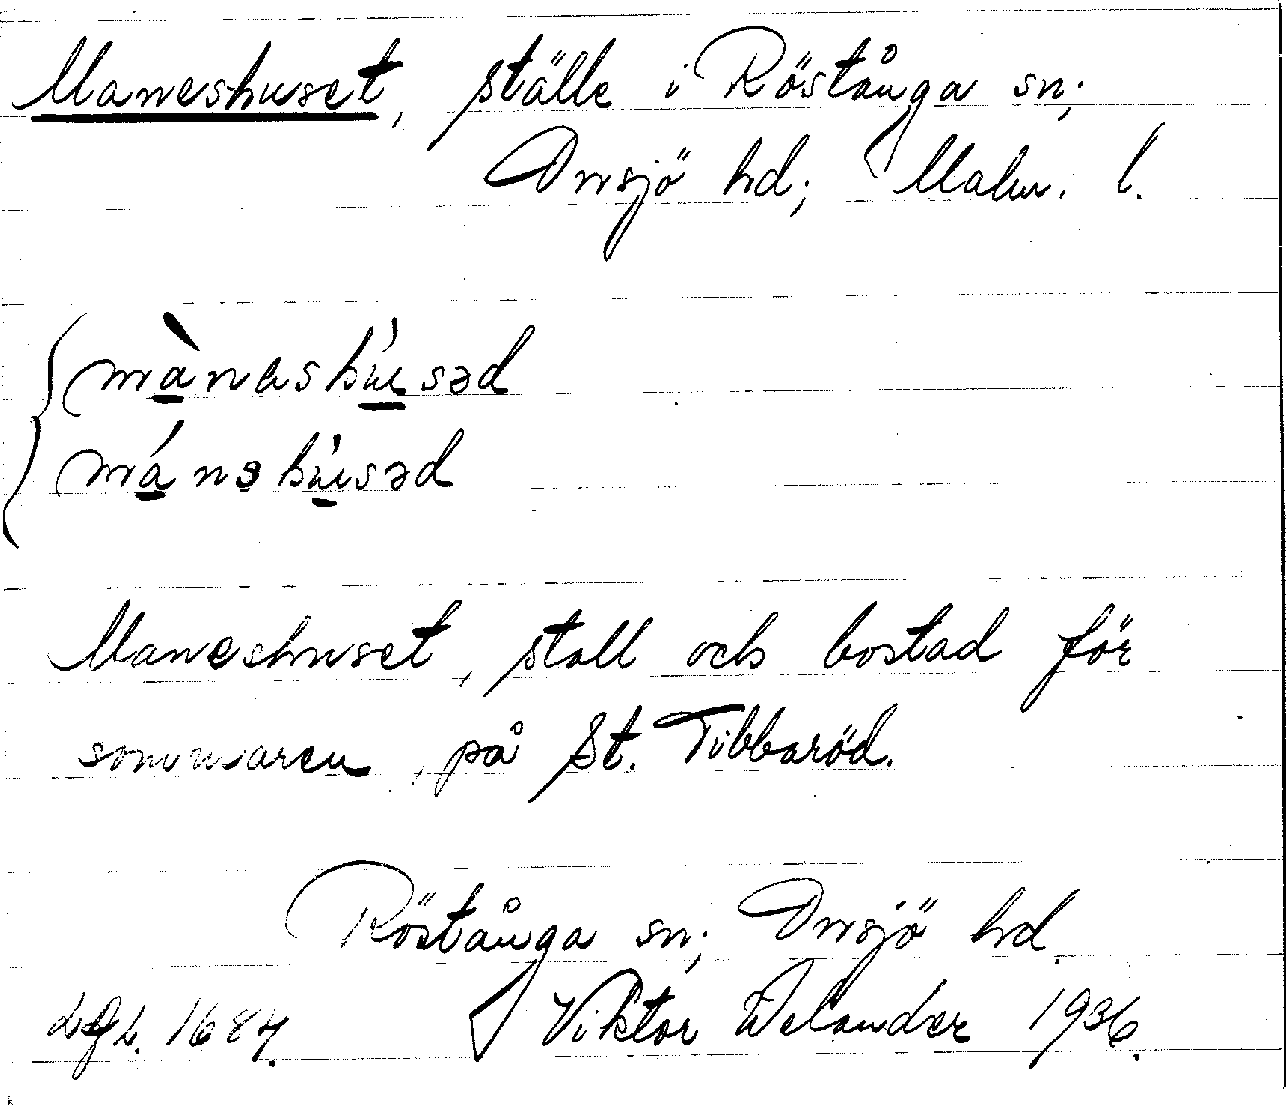 Maneshuset, ställe i Röstånga sn;
Onsjö hd; Malm. l.
mànashúsəd
mánshúsəd
Maneshuset, stall och bostad för
sommaren, på St. Tibbaröd.
Röstånga sn; Onsjö hd.
1684.
Viktor Welander 1936.